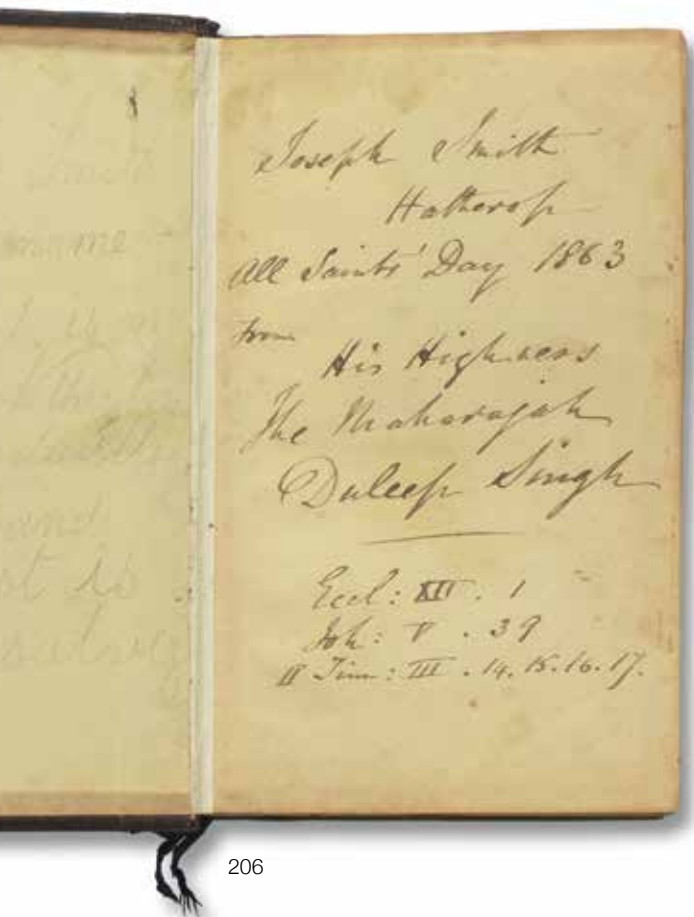 Joseph Smith
Hatherop
All Saints' Day 1863
from
His Highness
The Maharajah
Duleep Singh
Eccl: XII . 1
Joh: V . 39
II Tim: III . 14. 15. 16. 17.
206